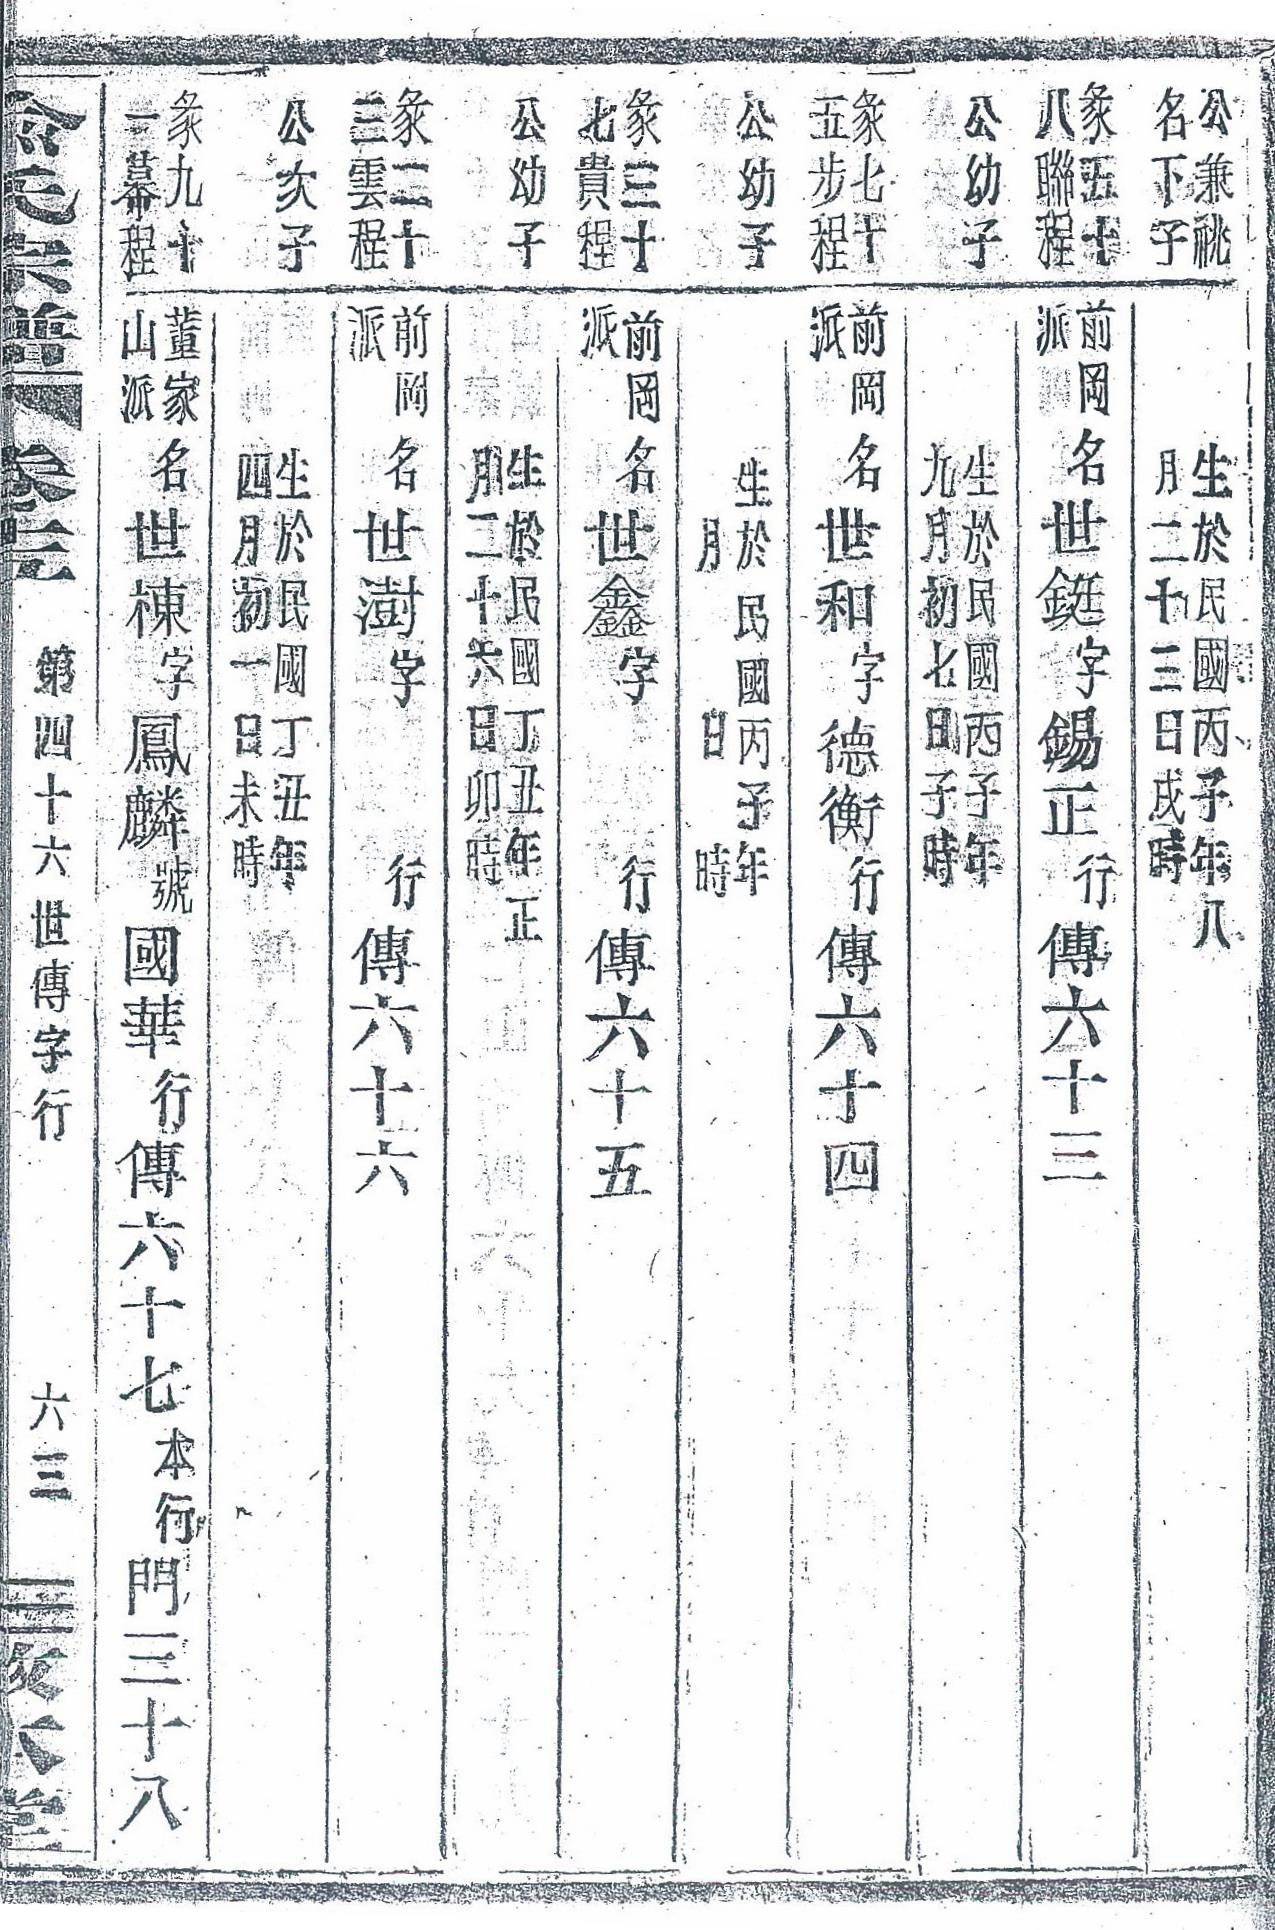 公兼祧
名下子
生於民國丙子年八
月二十三日戌時
彖五十
八聯程
前岡
派
名世鋌字錫正行傳六十三
公幼子
生於民國丙子年
九月初七日子時
彖七十
五步程
前岡
派
名世和字德衡行傳六十四
公幼子
生於民國丙子年
月 日 時
彖三十
七貴程
前岡
派
名世鑫字 行傳六十五
公幼子
生於民國丁丑年正
月二十六日卯時
彖二十
三雲程
前岡
派
名世澍字 行傳六十六
公次子
生於民國丁丑年
四月初一日未時
彖九十
一幕程
董家
山派
名世棟字鳳麟號國華行傳六十七本行門三十八
俞氏宗譜 卷三 第四十六世傳字行 六三